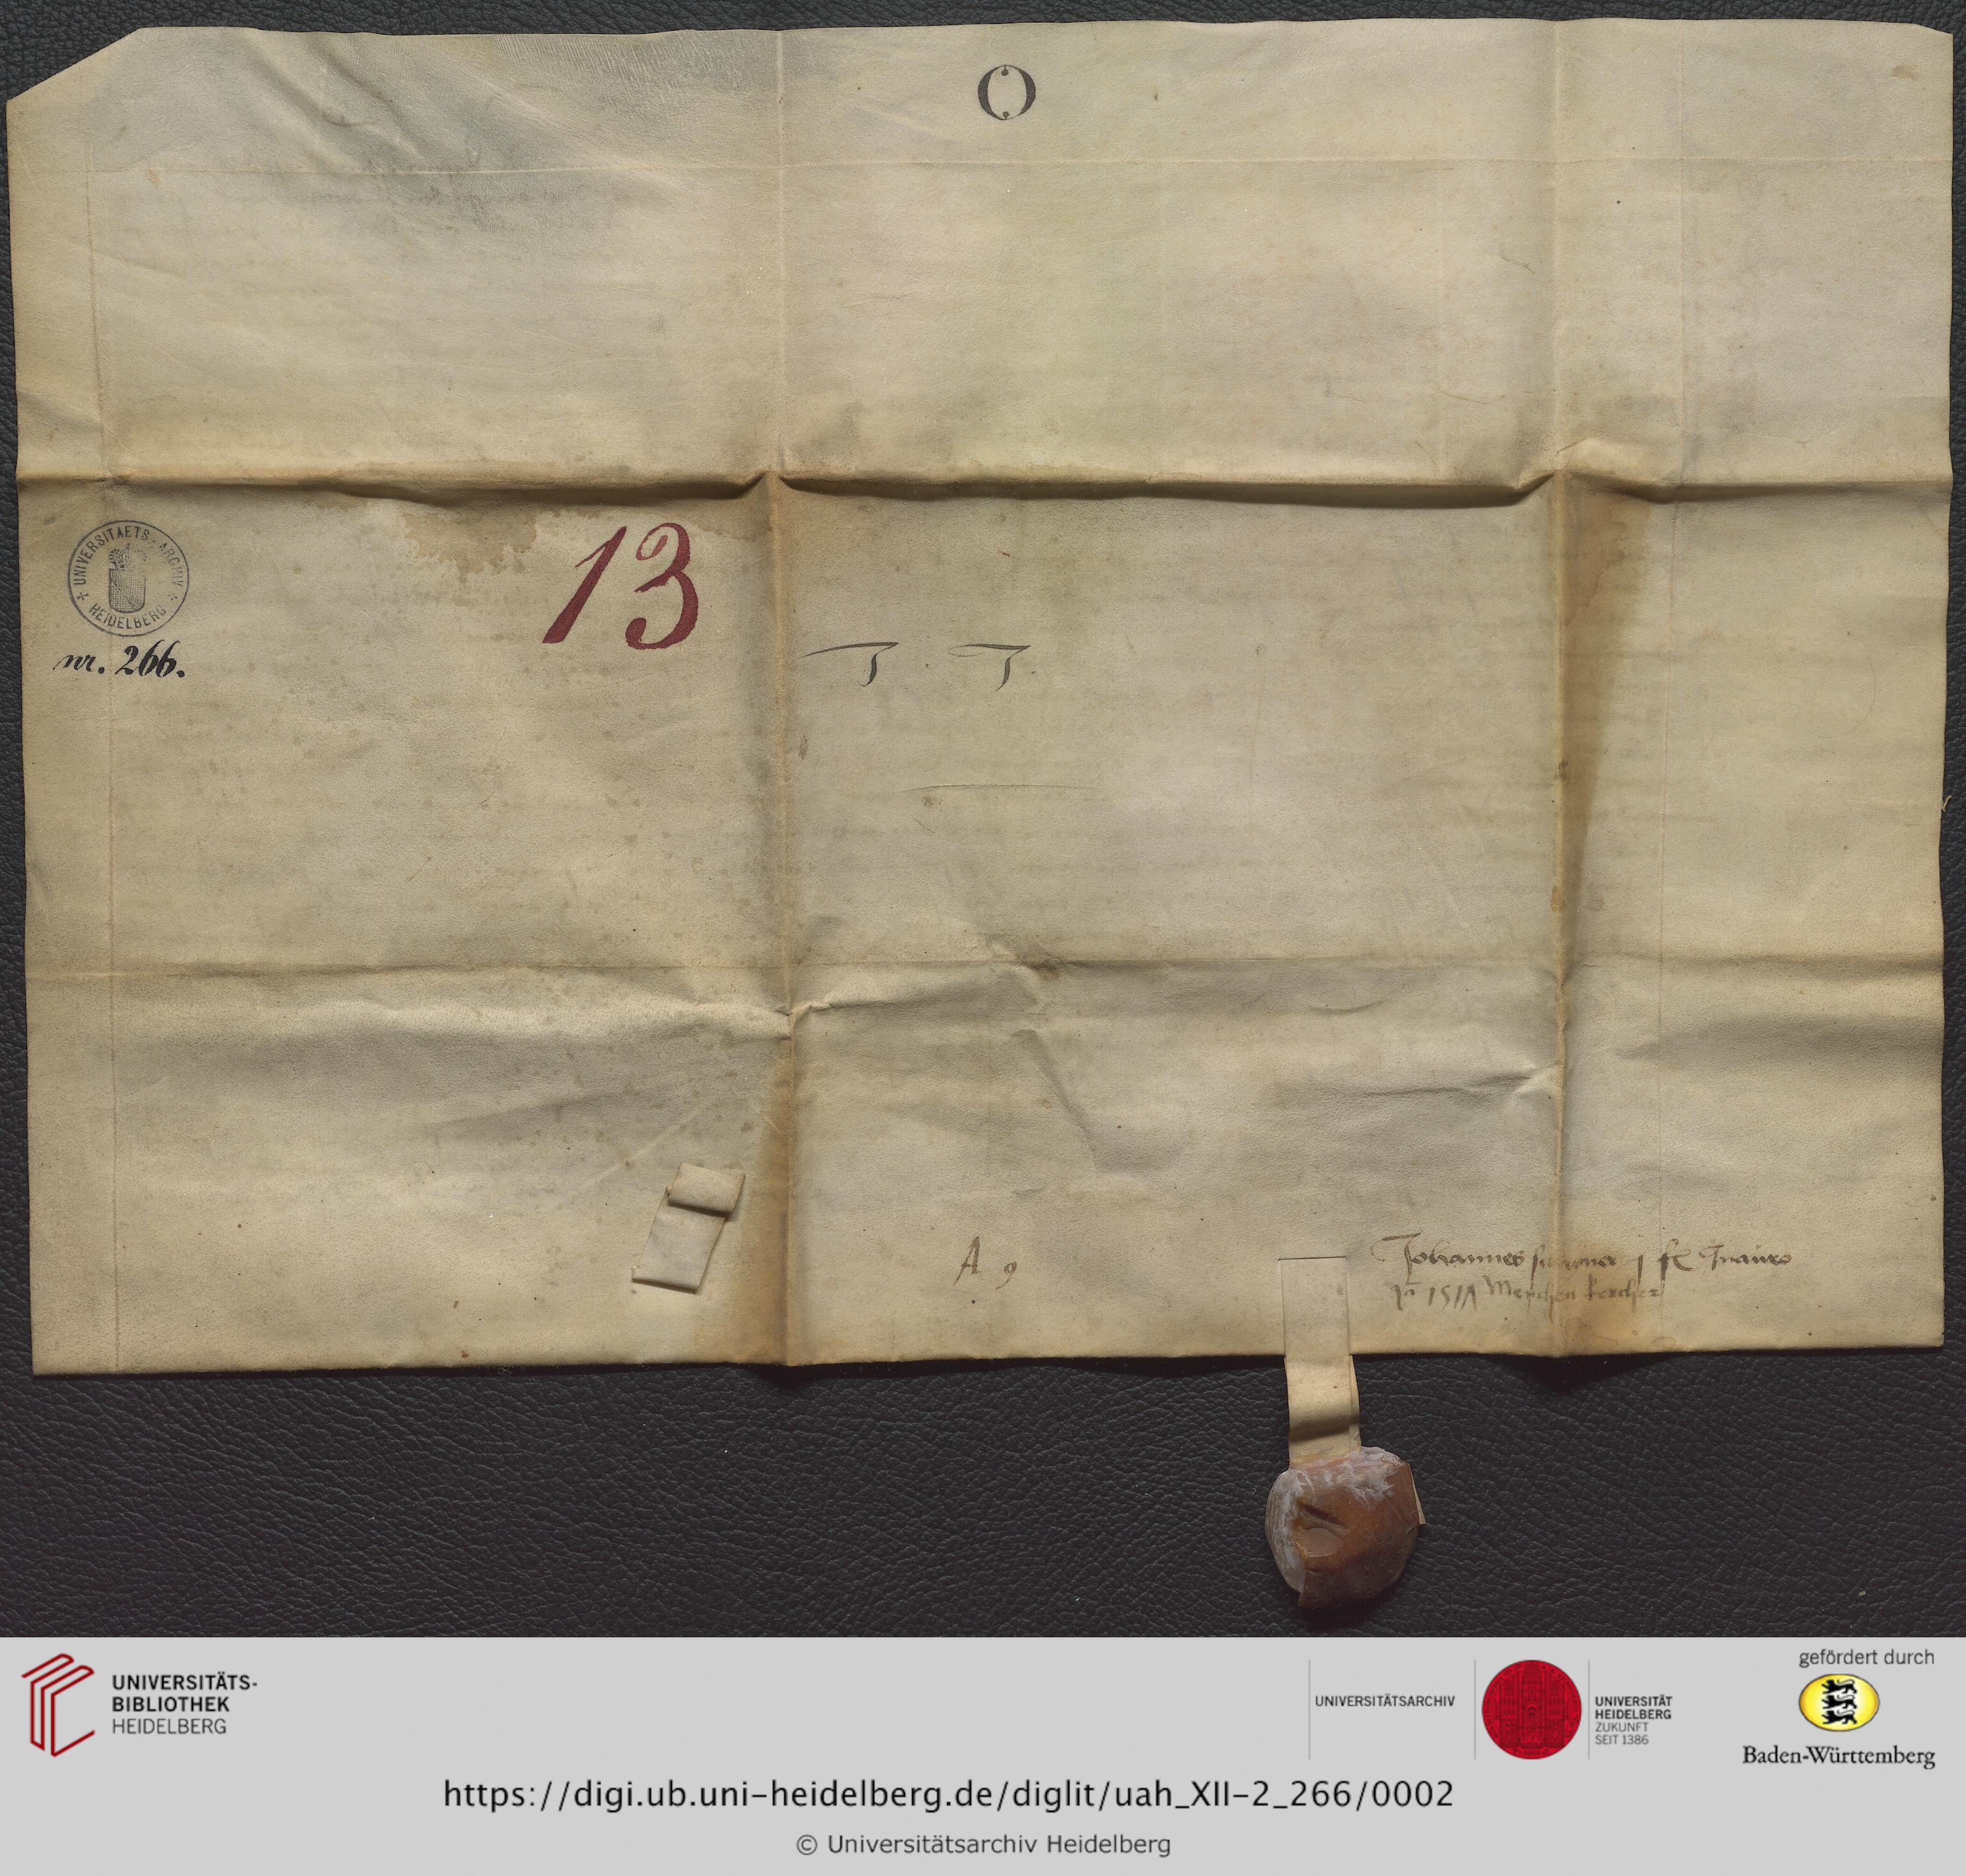 O
UNIVERSITAETS-ARCHIV
HEIDELBERG
nr. 266.
13
T . T.
A 9
Johannes
UNIVERSITÄTS-
BIBLIOTHEK
HEIDELBERG
UNIVERSITÄTSARCHIV
UNIVERSITÄT
HEIDELBERG
ZUKUNFT
SEIT 1386
gefördert durch
Baden-Württemberg
https://digi.ub.uni-heidelberg.de/diglit/uah_XII-2_266/0002
© Universitätsarchiv Heidelberg